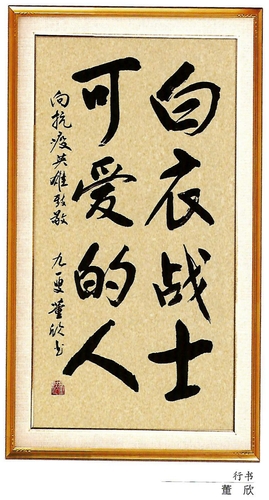 白衣战士
可爱的人
向抗疫英雄致敬 九更董欣书
行书
董欣